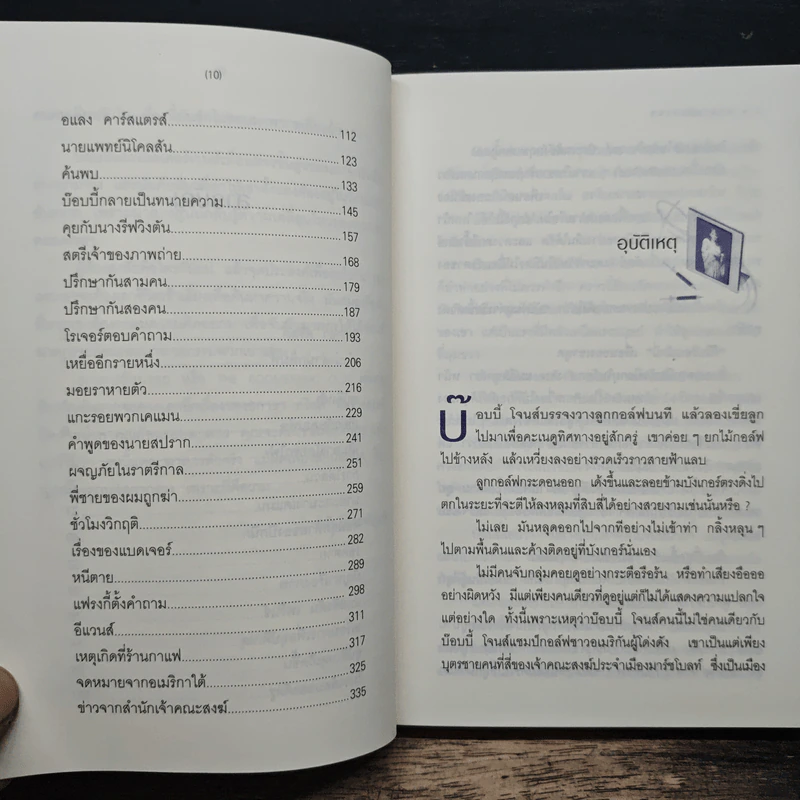 (10)
อแลง คาร์สแตรส์ 112
นายแพทย์นิโคลสัน 123
ค้นพบ 133
บ๊อบบี้กลายเป็นทนายความ 145
คุยกับนางรีฟวิงตัน 157
สตรีเจ้าของภาพถ่าย 168
ปรึกษากันสามคน 179
ปรึกษากันสองคน 187
โรเจอร์ตอบคำถาม 193
เหยื่ออีกรายหนึ่ง 206
มอยราหายตัว 216
แกะรอยพวกเคแมน 229
คำพูดของนายสปราก 241
ผจญภัยในราตรีกาล 251
พี่ชายของผมถูกฆ่า 259
ชั่วโมงวิกฤติ 271
เรื่องของแบดเจอร์ 282
หนีตาย 289
แฟรงกี้ตั้งคำถาม 298
อีแวนส์ 311
เหตุเกิดที่ร้านกาแฟ 317
จดหมายจากอเมริกาใต้ 325
ข่าวจากสำนักเจ้าคณะสงฆ์ 335
อุบัติเหตุ
บ๊อบบี้ โจนส์บรรจงวางลูกกอล์ฟบนที แล้วลองเขี่ยลูก
ไปมาเพื่อคะเนดูทิศทางอยู่สักครู่ เขาค่อย ๆ ยกไม้กอล์ฟ
ไปข้างหลัง แล้วเหวี่ยงลงอย่างรวดเร็วราวสายฟ้าแลบ
ลูกกอล์ฟกระดอนออก เด้งขึ้นและลอยข้ามบังเกอร์ตรงดิ่งไป
ตกในระยะที่จะตีให้ลงหลุมที่สิบสี่ได้อย่างสวยงามเช่นนั้นหรือ ?
ไม่เลย มันหลุดออกไปจากทีอย่างไม่เข้าท่า กลิ้งหลุน ๆ
ไปตามพื้นดินและค้างติดอยู่ที่บังเกอร์นั่นเอง
ไม่มีคนจับกลุ่มคอยดูอย่างกระตือรือร้น หรือทำเสียงอืออ
อย่างผิดหวัง มีแต่เพียงคนเดียวที่ดูอยู่แต่ก็ไม่ได้แสดงความแปลกใจ
แต่อย่างใด ทั้งนี้เพราะเหตุว่าบ๊อบบี้ โจนส์คนนี้ไม่ใช่คนเดียวกับ
บ๊อบบี้ โจนส์แชมป์กอล์ฟชาวอเมริกันผู้โด่งดัง เขาเป็นแต่เพียง
บุตรชายคนที่สี่ของเจ้าคณะสงฆ์ประจำเมืองมาร์ชโบลท์ ซึ่งเป็นเมือง